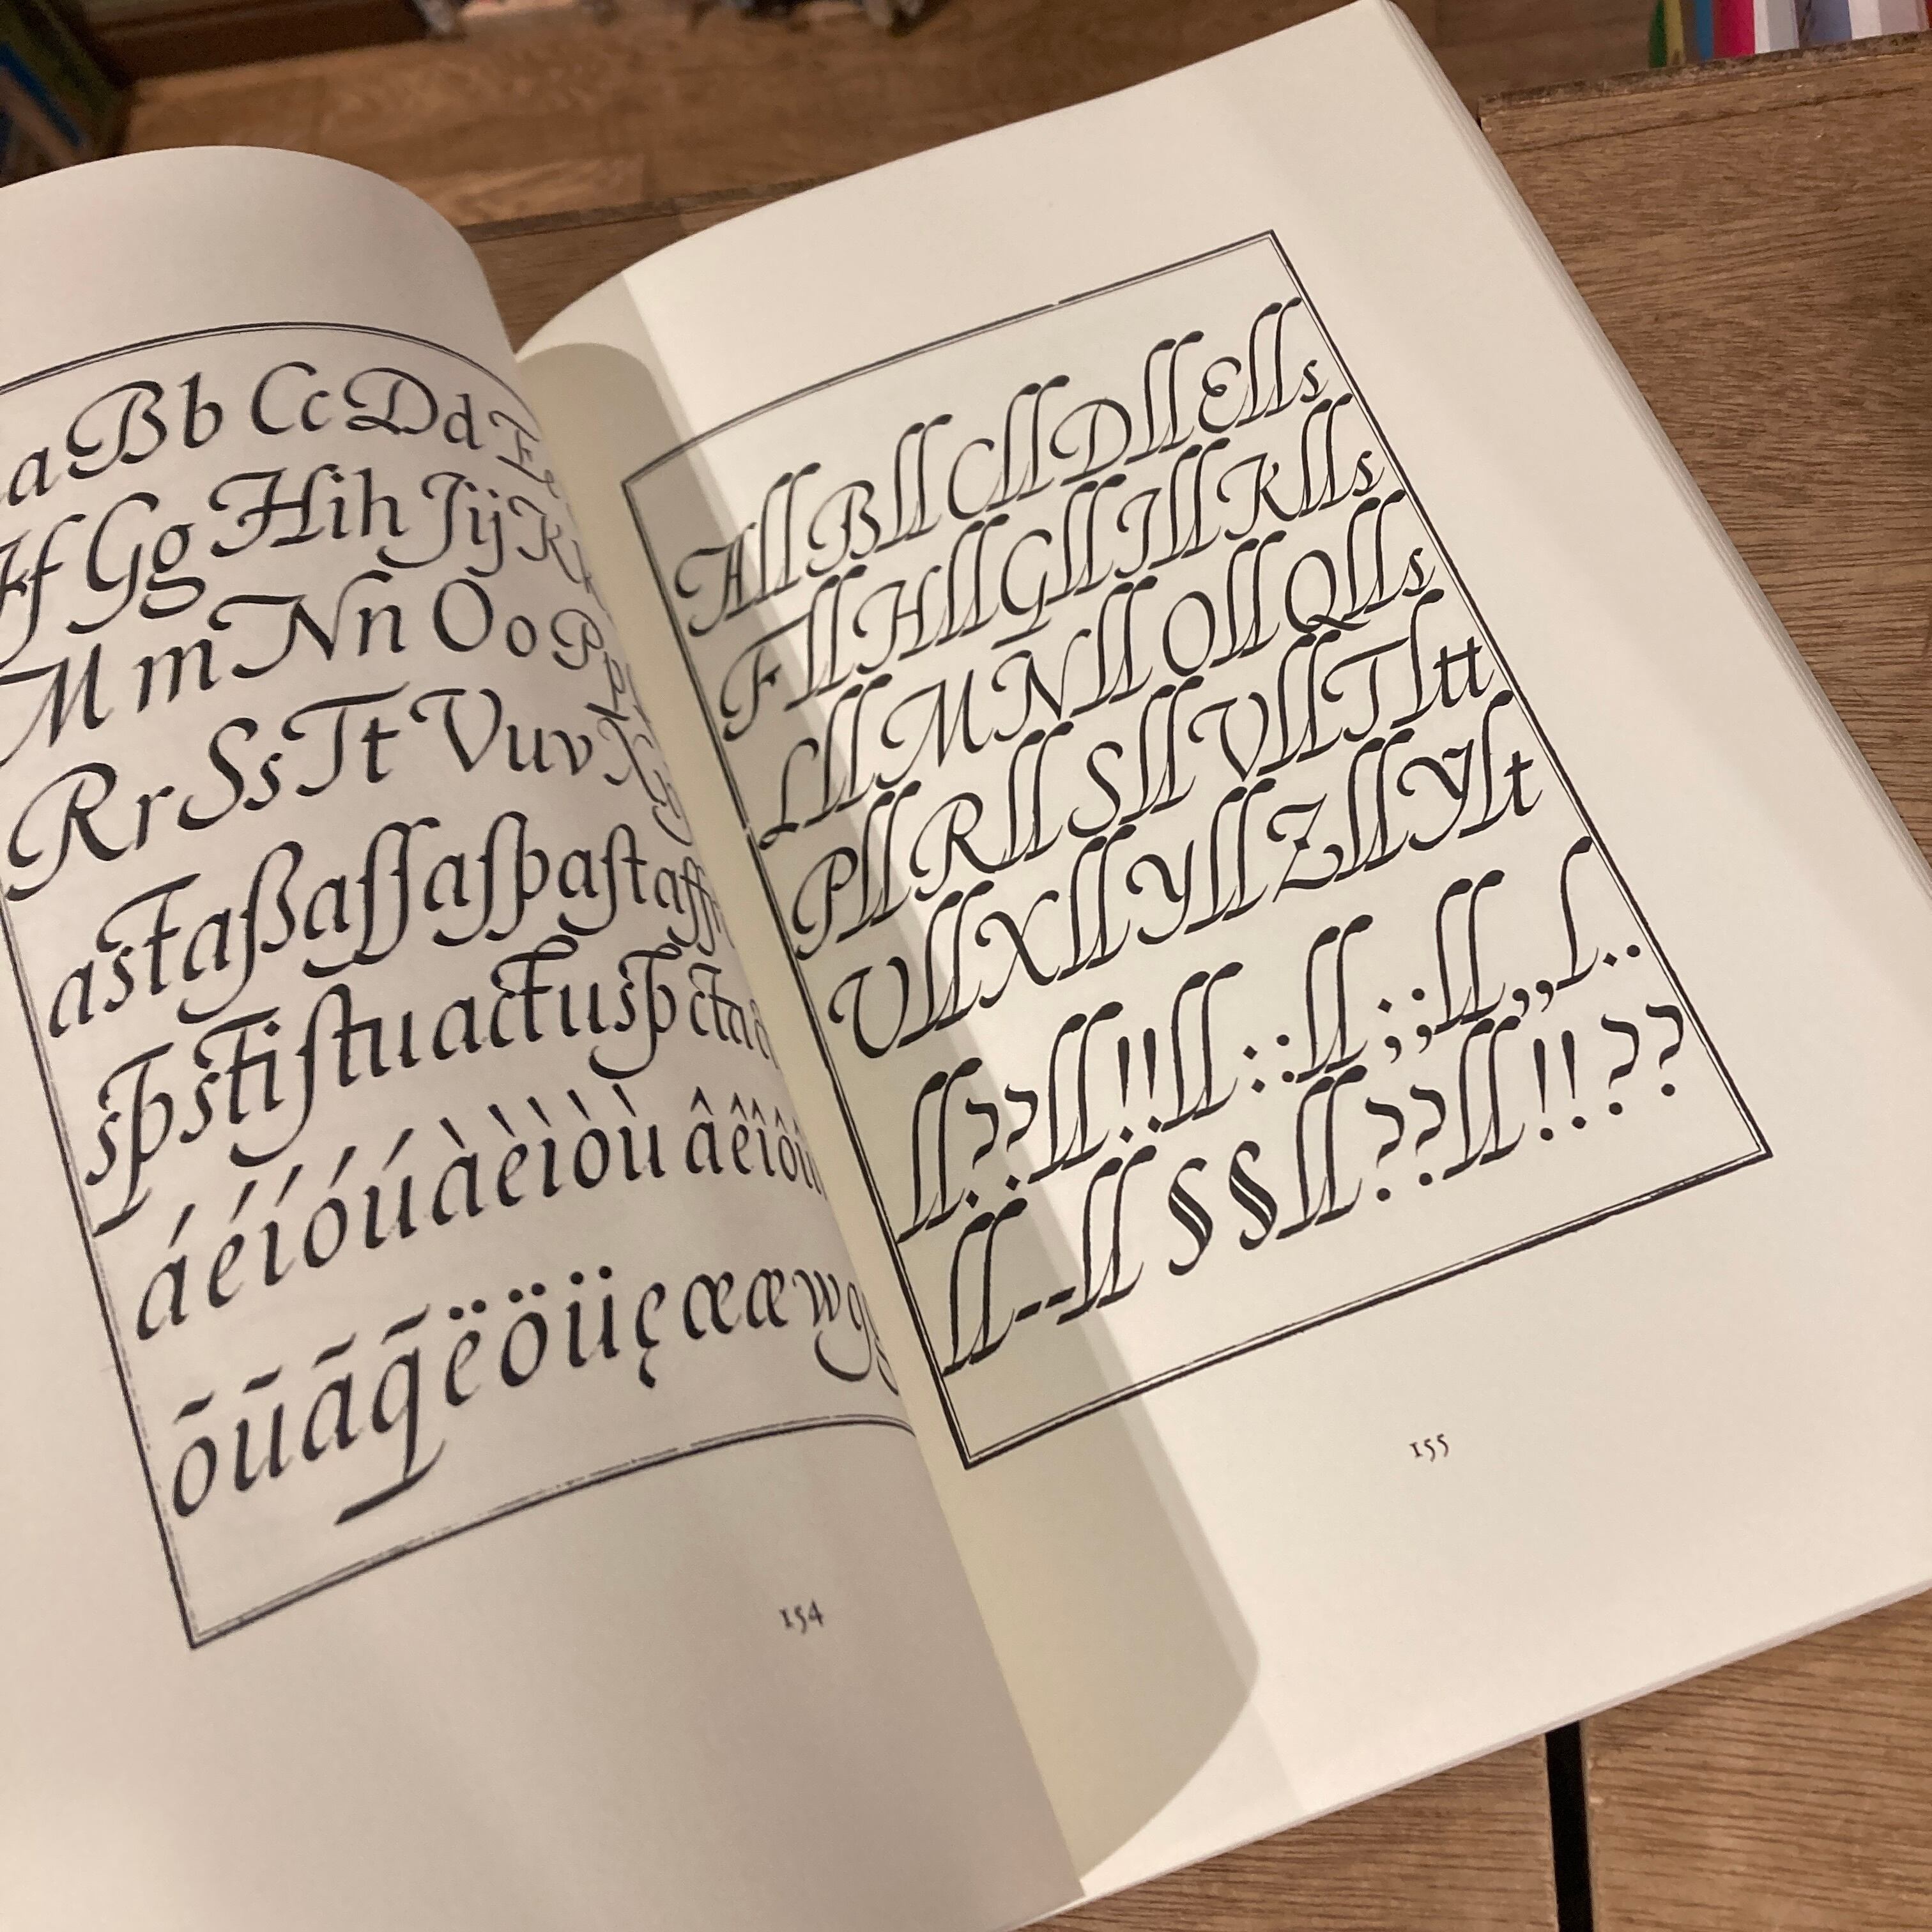 a Bb Cc Dd E
Ff Gg Hih Jij K
M m Nn Oo Pp
Rr Ss Tt Vuv X
astaßaſſaſpaſtaff
spstiſtuactusp cta
áéíóúàèìòù âêîô
õũãq̃ëöüçææw
154
All Bll Cll Dll Ells
Fll Hll Gll Ill Klls
Lll M Nll Oll Qlls
Pll Rll Sll Vll Tltt
Ull Xll Yll Zll Ylt
ll??ll!!ll::ll;;ll,,l..
ll--ll §§ll??ll!!??
155